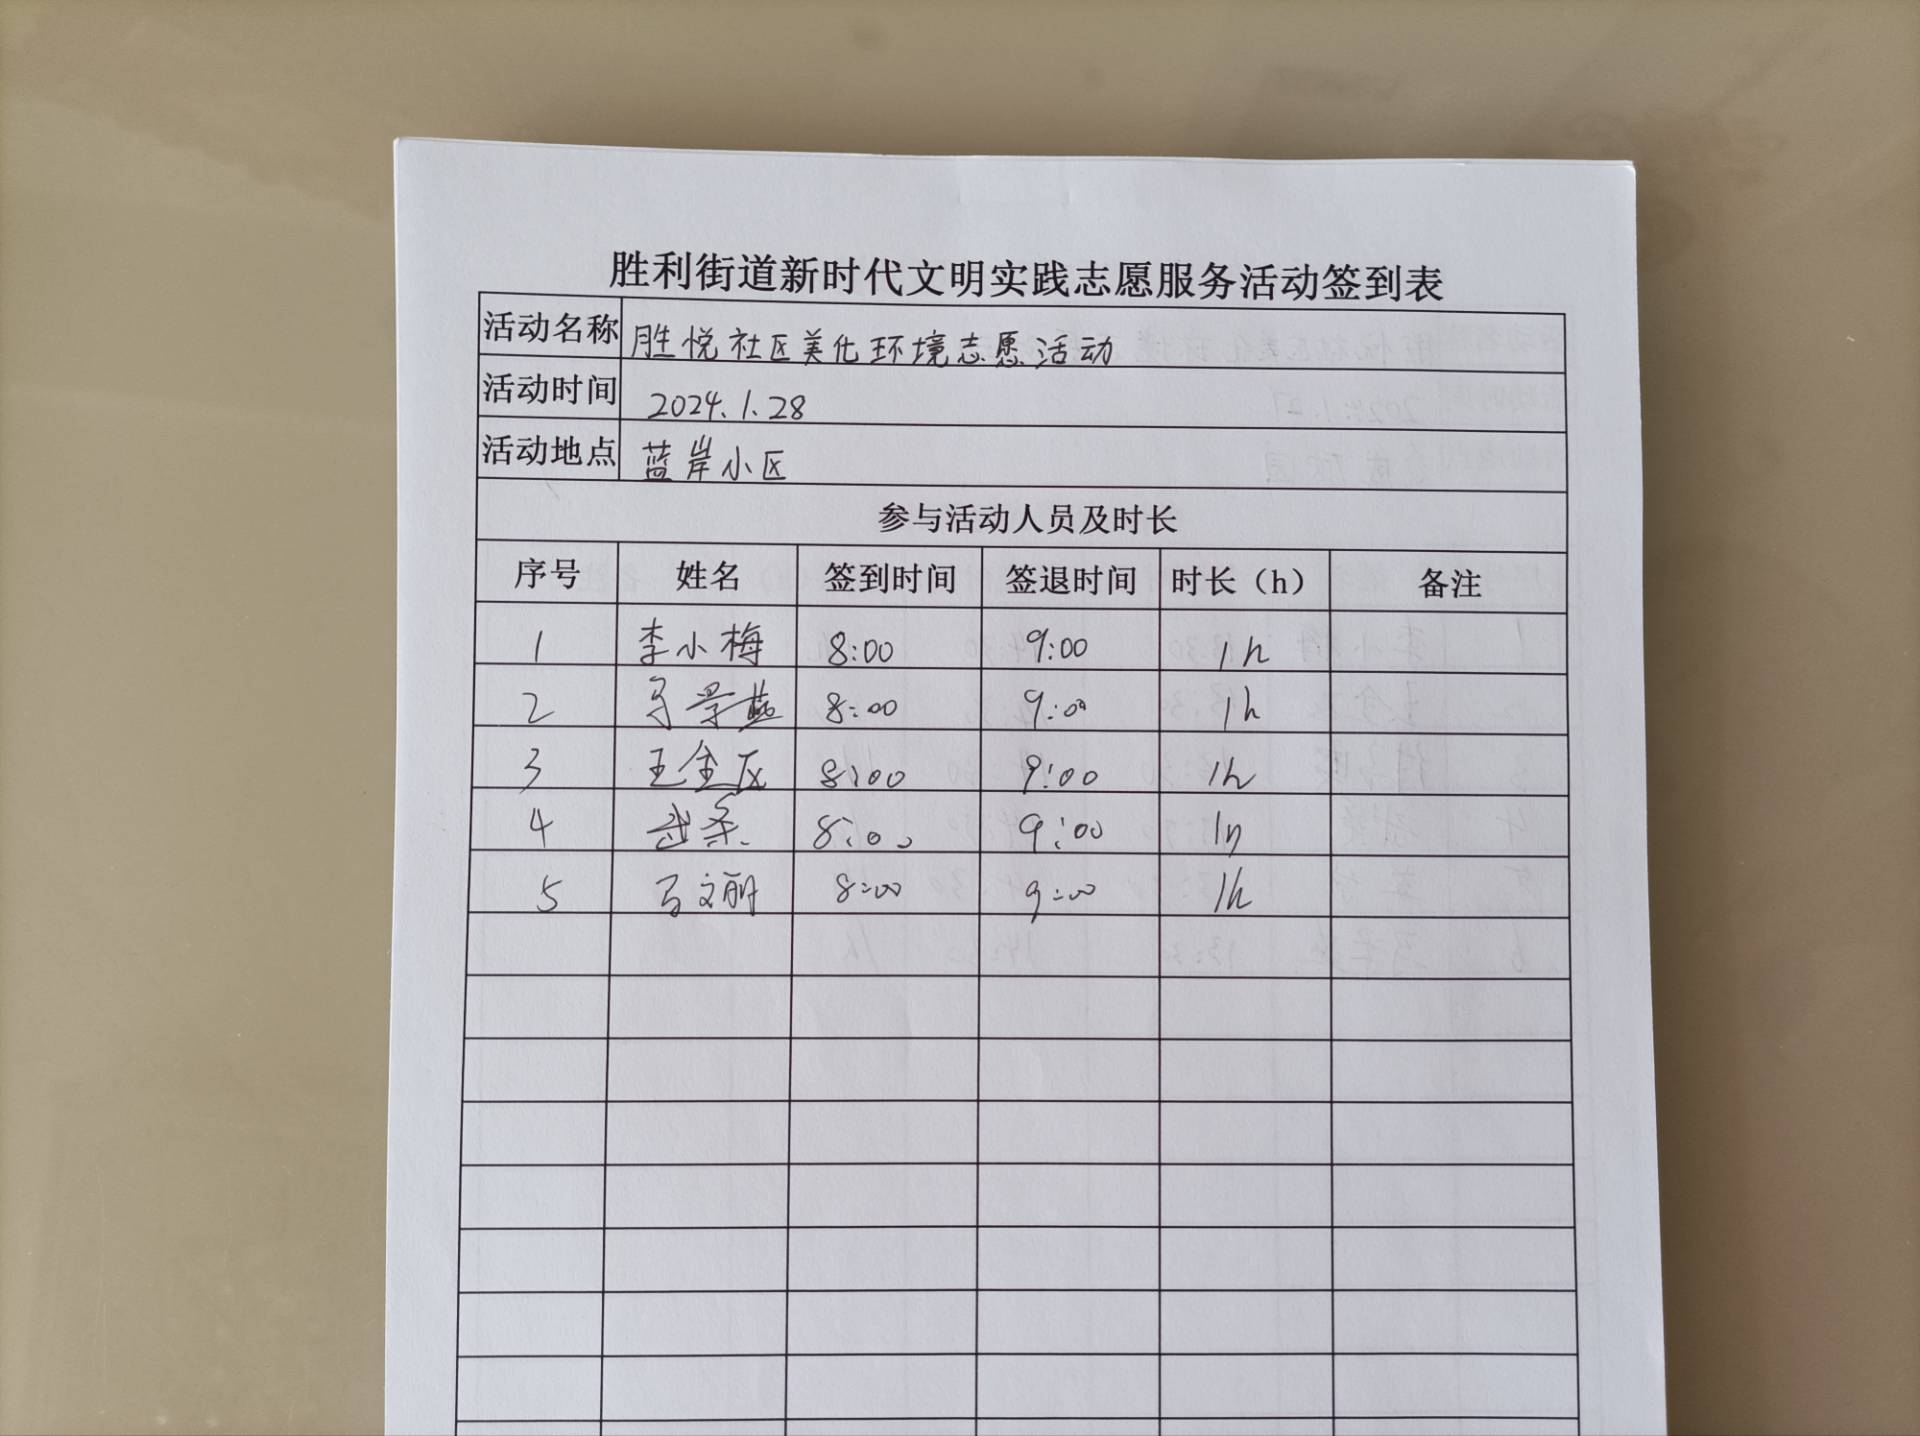 胜利街道新时代文明实践志愿服务活动签到表
活动名称 胜悦社区美化环境志愿活动
活动时间 2024.1.28
活动地点 蓝岸小区
参与活动人员及时长
序号 姓名 签到时间 签退时间 时长（h） 备注
1 李小梅 8:00 9:00 1h
2 8:00 9:00 1h
3 王金 8:00 9:00 1h
4 8:00 9:00 1h
5 马文丽 8:00 9:00 1h